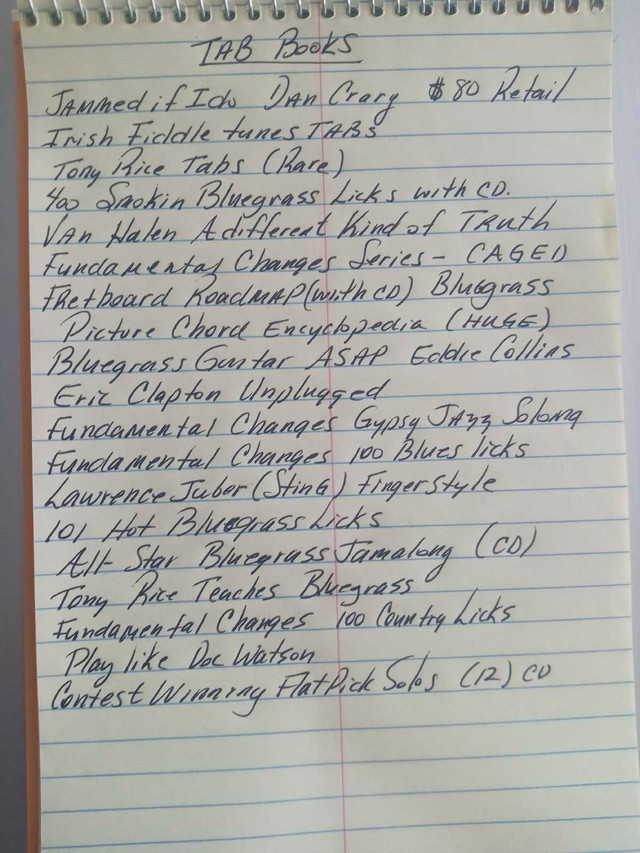 TAB Books
Jammed if I do Dan Crary $80 Retail
Irish Fiddle tunes TABs
Tony Rice Tabs (Rare)
400 Smokin Bluegrass Licks with CD.
Van Halen A different Kind of Truth
Fundamental Changes Series - CAGED
Fretboard RoadMAP (with CD) Bluegrass
Picture Chord Encyclopedia (HUGE)
Bluegrass Guitar ASAP Eddie Collins
Eric Clapton Unplugged
Fundamental Changes Gypsy Jazz Soloing
Fundamental Changes 100 Blues licks
Lawrence Juber (Sting) Fingerstyle
101 Hot Bluegrass Licks
All-Star Bluegrass Jamalong (CD)
Tony Rice Teaches Bluegrass
Fundamental Changes 100 Country Licks
Play like Doc Watson
Contest Winning FlatPick Solos (12) CD